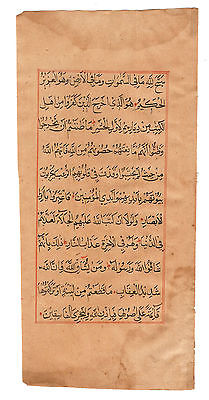 سَبَّحَ لِلَّهِ مَا فِي السَّمٰوَاتِ وَمَا فِي الْأَرْضِ وَهُوَ الْعَزِيزُ
الْحَكِيمُ هُوَ الَّذِي أَخْرَجَ الَّذِينَ كَفَرُوا مِنْ أَهْلِ
الْكِتَابِ مِنْ دِيَارِهِمْ لِأَوَّلِ الْحَشْرِ مَا ظَنَنْتُمْ أَنْ يَخْرُجُوا
وَظَنُّوا أَنَّهُمْ مَانِعَتُهُمْ حُصُونُهُمْ مِنَ اللَّهِ فَأَتَاهُمُ اللَّهُ
مِنْ حَيْثُ لَمْ يَحْتَسِبُوا وَقَذَفَ فِي قُلُوبِهِمُ الرُّعْبَ يُخْرِبُونَ
بُيُوتَهُمْ بِأَيْدِيهِمْ وَأَيْدِي الْمُؤْمِنِينَ فَاعْتَبِرُوا يَا أُولِي
الْأَبْصَارِ وَلَوْلَا أَنْ كَتَبَ اللَّهُ عَلَيْهِمُ الْجَلَاءَ لَعَذَّبَهُمْ
فِي الدُّنْيَا وَلَهُمْ فِي الْآخِرَةِ عَذَابُ النَّارِ ذٰلِكَ بِأَنَّهُمْ
شَاقُّوا اللَّهَ وَرَسُولَهُ وَمَنْ يُشَاقِّ اللَّهَ فَإِنَّ اللَّهَ
شَدِيدُ الْعِقَابِ مَا قَطَعْتُمْ مِنْ لِينَةٍ أَوْ تَرَكْتُمُوهَا
قَائِمَةً عَلَى أُصُولِهَا فَبِإِذْنِ اللَّهِ وَلِيُخْزِيَ الْفَاسِقِينَ